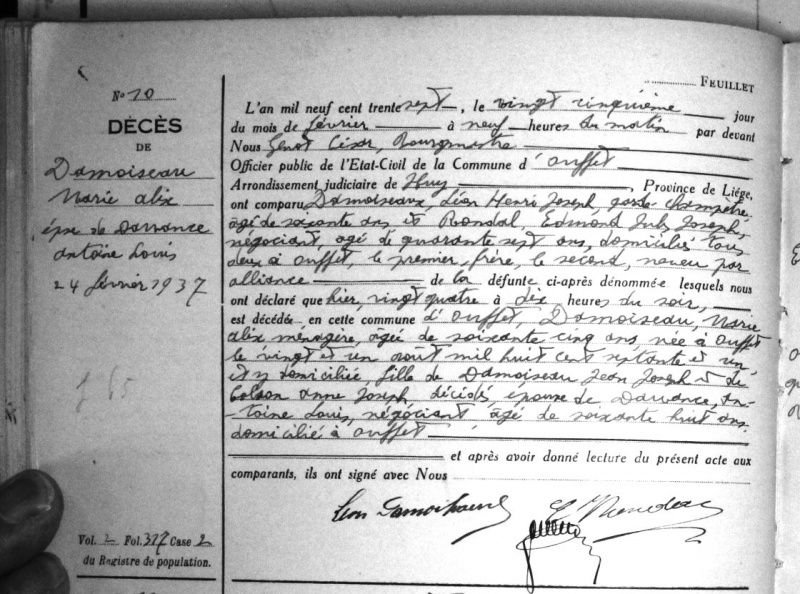 No 10
DÉCÈS
DE
Damoiseau
Marie Alix
épse de Darrance
Antoine Louis
24 février 1937
f 65
Vol. 2 Fol. 317 Case 2
du Registre de population.
FEUILLET
L'an mil neuf cent trente sept, le vingt cinquième jour
du mois de février à neuf heures du matin par devant
Nous Genot César, Bourgmestre
Officier public de l'Etat-Civil de la Commune d'Ouffet
Arrondissement judiciaire de Huy, Province de Liége,
ont comparu Damoiseaux, Léon Henri Joseph, garde champêtre,
âgé de soixante ans et Rondal, Edmond Jules Joseph,
négociant, âgé de quarante sept ans, domiciliés tous
deux à Ouffet, le premier, frère, le second, neveu par
alliance de la défunte ci-après dénommée lesquels nous
ont déclaré que hier, vingt quatre à dix heures du soir,
est décédée en cette commune d'Ouffet, Damoiseau, Marie
Alix ménagère, âgée de soixante cinq ans née à Ouffet
le vingt et un août mil huit cent septante et un,
et y domiciliée, fille de Damoiseau Jean Joseph et de
Colson Anne Joseph décédés, épouse de Darrance, An-
-toine Louis, négociant âgé de soixante huit ans
domicilié à Ouffet
et après avoir donné lecture du présent acte aux
comparants, ils ont signé avec Nous
Léon Damoiseaux